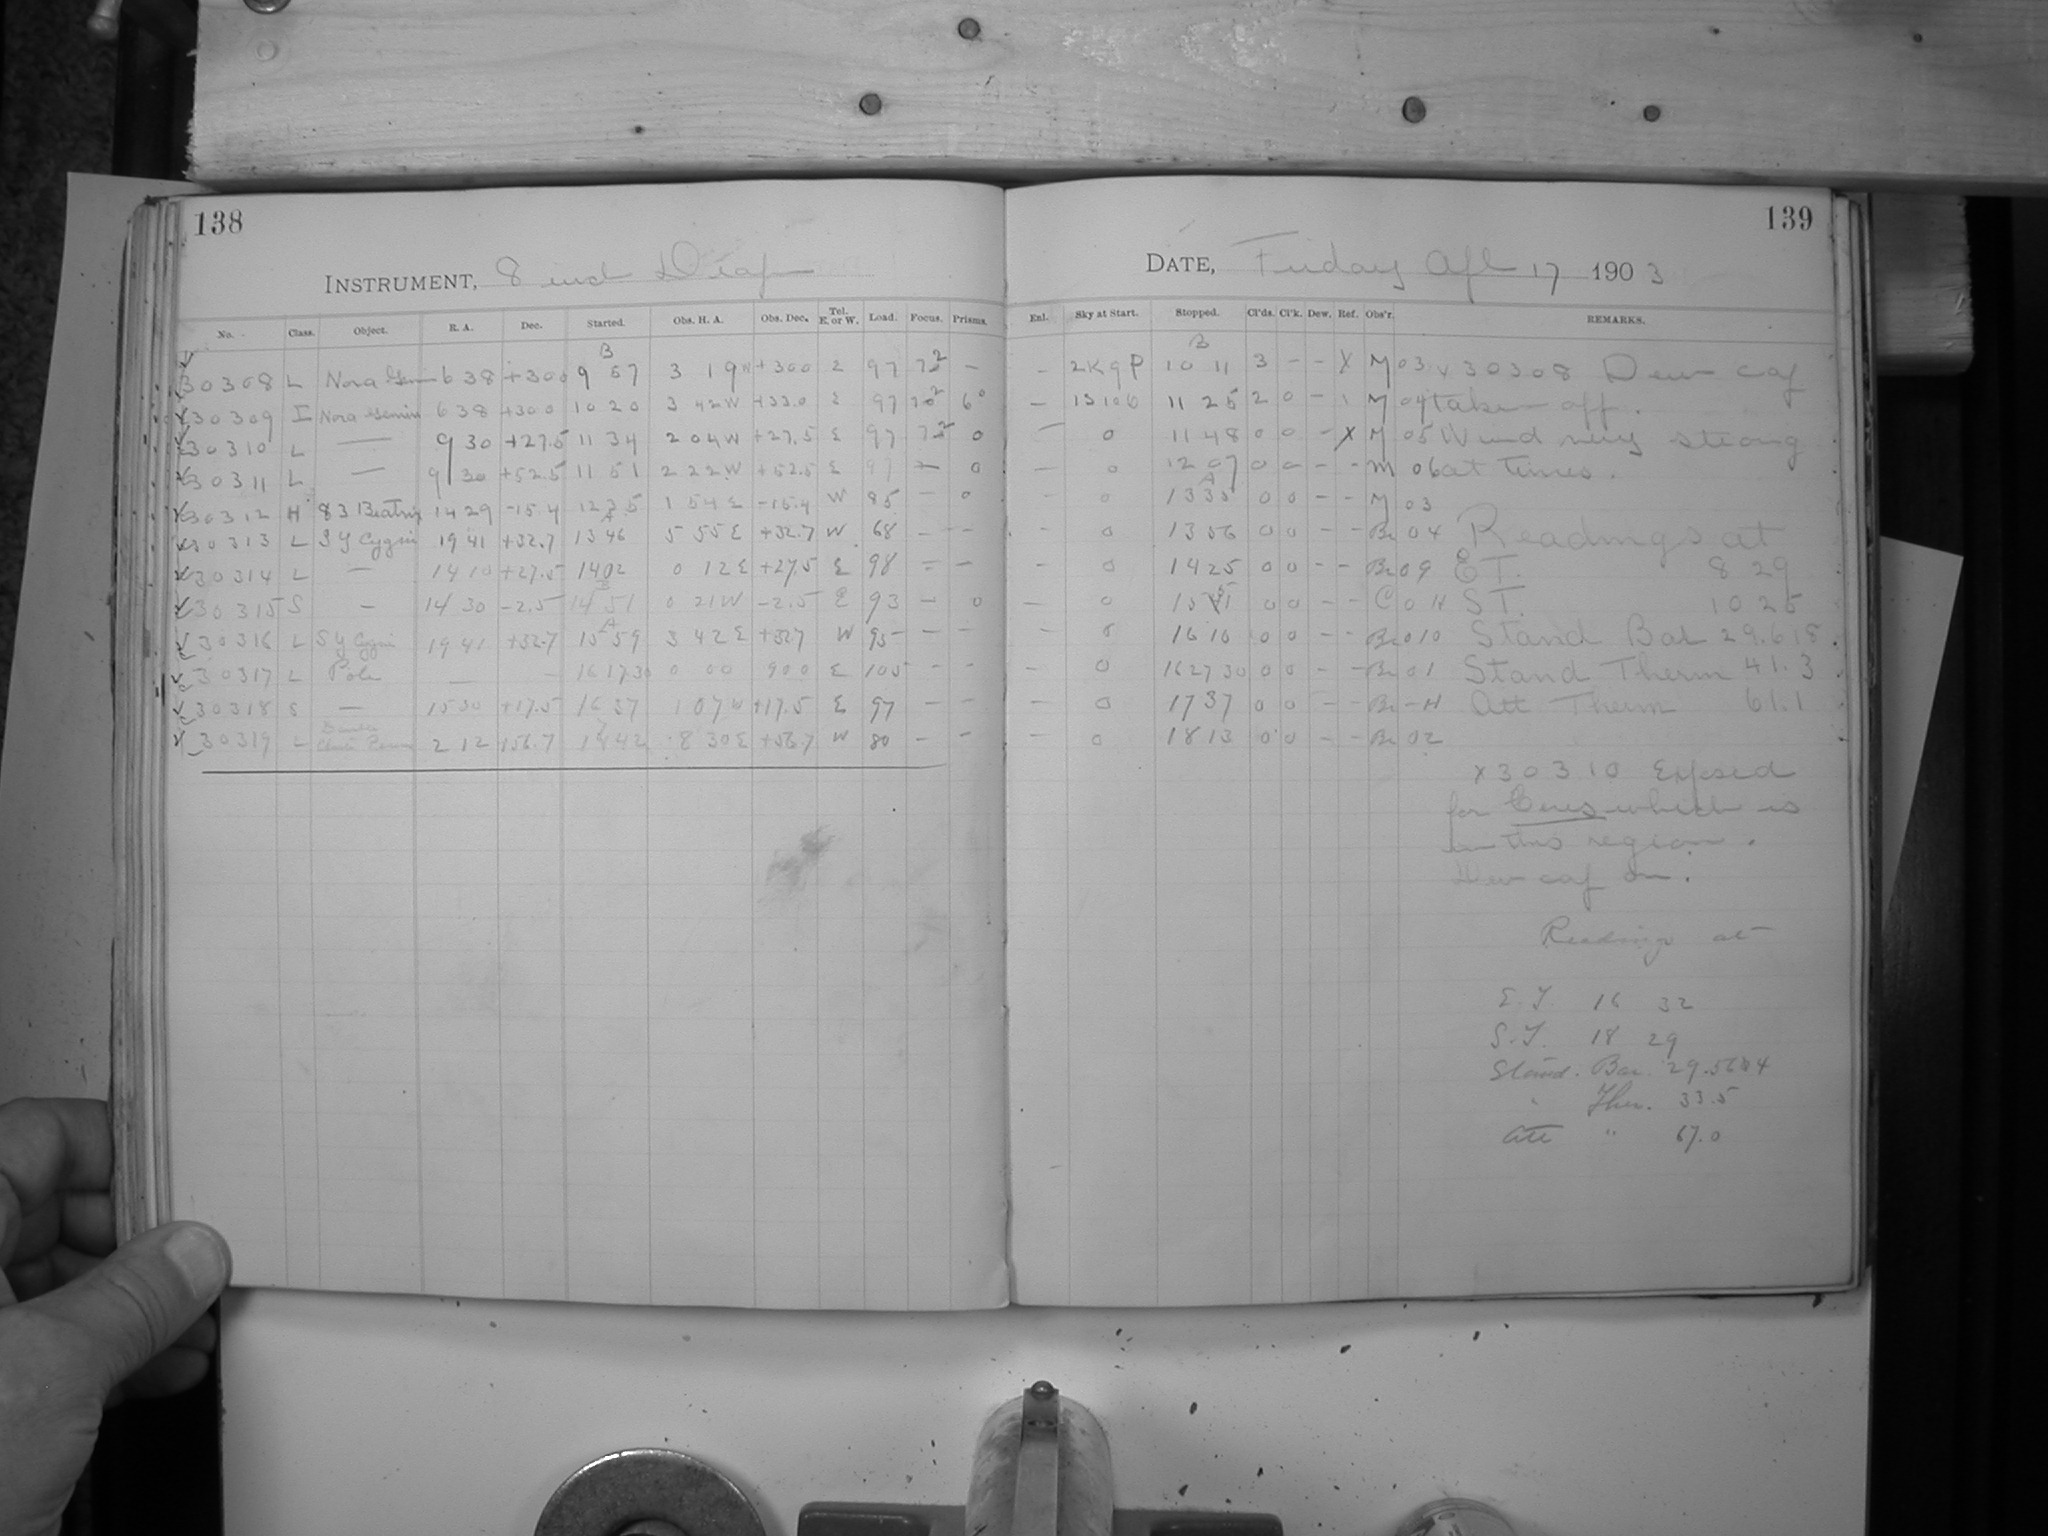 138
139
INSTRUMENT, 8 inch Draper
DATE, Friday Apl 17 1903
No. Class. Object. R. A. Dec. Started. Obs. H. A. Obs. Dec. Tel. E. or W. Load. Focus. Prisms. Enl. Sky at Start. Stopped. Cl'ds. Cl'k. Dew. Ref. Obs'r. REMARKS.
30308 L Nova Gem 6 38 +30.0 9 57 3 19 W +30.0 E 97 — — 10 11 3 – – X M 03 x 30308 Dew cap
30309 I Nova Gemin 6 38 +30.0 10 20 3 42 W +33.0 E 97 — 11 25 2 0 – M 04 taken off.
30310 L — 9 30 +27.5 11 34 2 04 W +27.5 E 97 0 — 0 11 48 0 0 – X M 05 Wind very strong
30311 L — 9 30 +52.5 11 51 2 22 W +52.5 E 97 — 0 — 0 12 07 0 0 – – M 06 at times.
30312 H 83 Beatrix 14 29 -15.4 12 35 1 54 E -15.4 W 85 – 0 – 0 13 35 0 0 – – M 03
30313 L SY Cygni 19 41 +32.7 13 46 5 55 E +32.7 W 68 – – – 0 13 56 0 0 – – Br 04 Readings at
30314 L — 14 10 +27.5 14 02 0 12 E +27.5 E 98 – – – 0 14 25 0 0 – – Br 09 E T. 8 29
30315 S — 14 30 -2.5 14 51 0 21 W -2.5 E 93 – 0 — 0 0 0 – – C 0 H S T. 10 25
30316 L SY Cygni 19 41 +32.7 15 59 3 42 E +32.7 W 95 – – – 0 16 10 0 0 – – Br 010 Stand Bar 29.618
30317 L Pole — – 16 17 30 0 00 90 0 E 105 – – – 0 16 27 30 0 0 – – Br 01 Stand Therm 41.3
30318 S — 15 30 +17.5 16 37 1 07 W +17.5 E 97 – – – 0 17 37 0 0 – – Br – H Att Therm 61.1
30319 L 2 12 +56.7 8 30 E +56.7 W 80 – – – 0 18 13 0 0 – – Br 02
x 30310 Exposed
for Ceres which is
in this region.
Dew cap on.
Reading at
E. T. 16 32
S. T. 18 29
Stand. Bar.
" Ther. 33.5
Att " 67.0